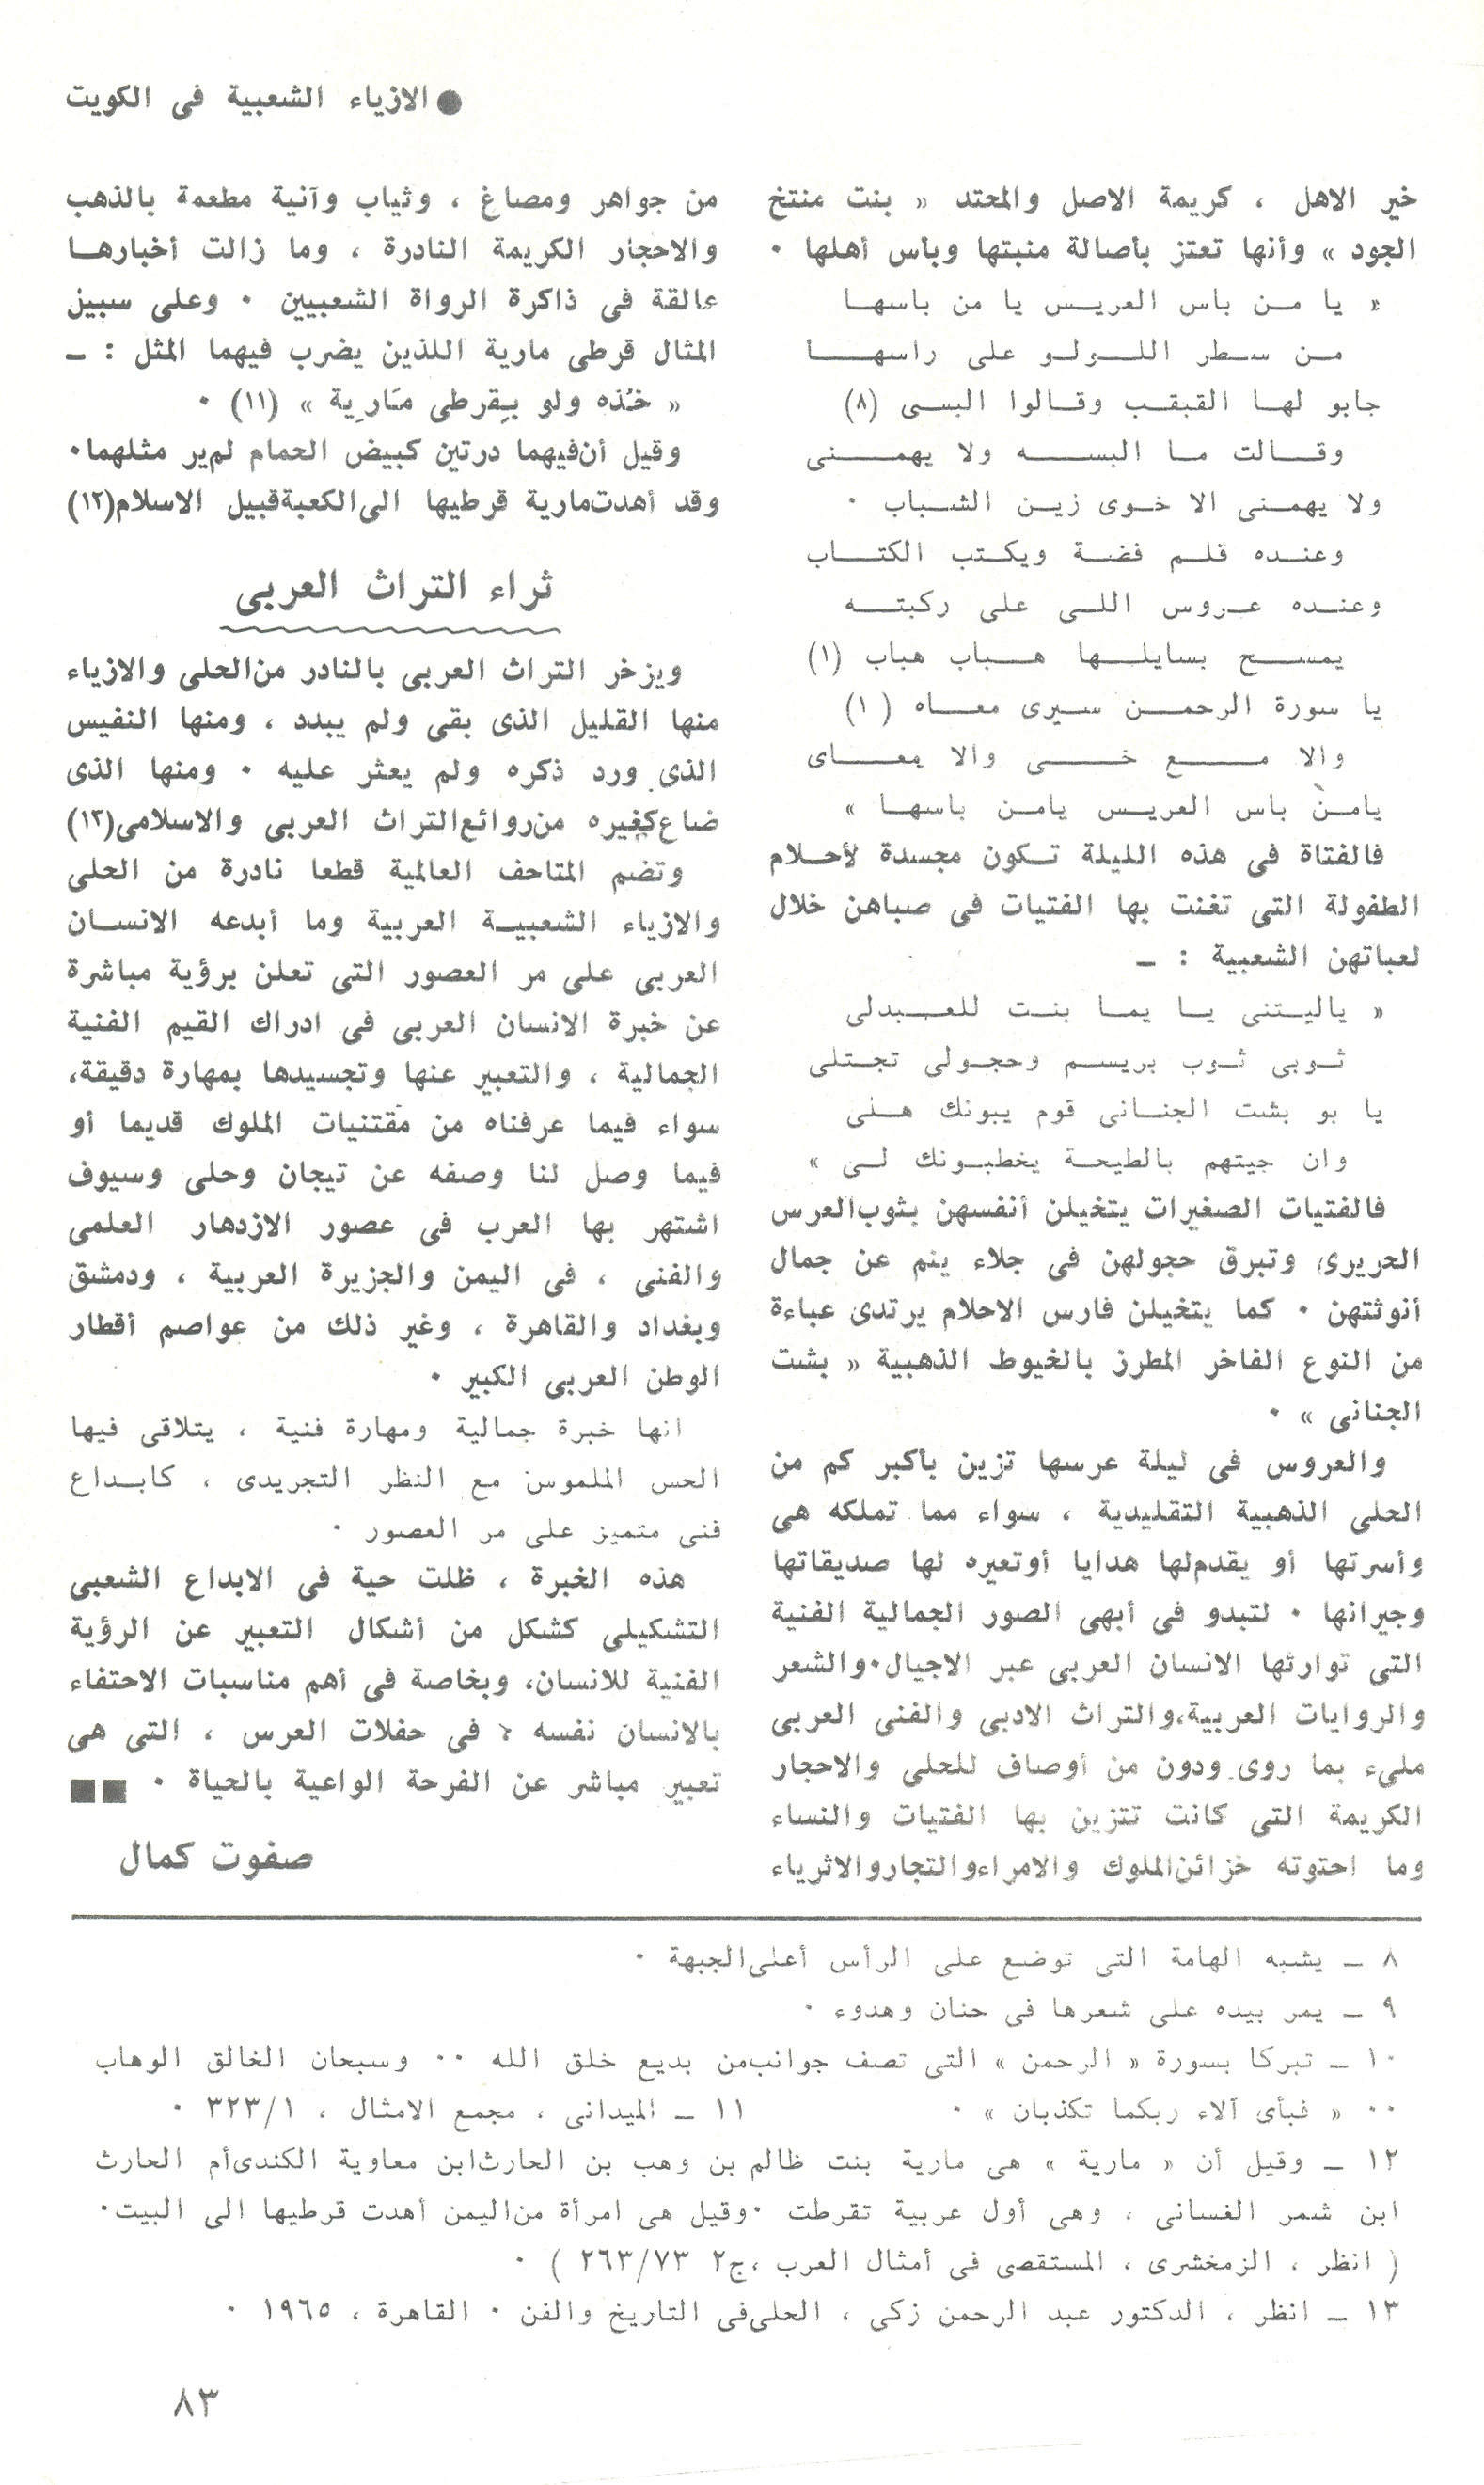 ● الازياء الشعبية فى الكويت
خير الاهل ، كريمة الاصل والمحتد « بنت منتخ
الجود » وأنها تعتز بأصالة منبتها وبأس أهلها ٠
« يا مـن باس العريـس يا من باسهـا
مـن سـطر اللـولـو على راسهـــا
جابو لهـا القبقـب وقـالوا البسـى (٨)
وقـــالت مـا البســـه ولا يهمــنى
ولا يهمـنى الا خـوى زيـن الشـباب ٠
وعنـده قلـم فضـة ويكـتب الكتـــاب
وعنـده عـروس اللـى على ركبتـــه
يمســـح بسايلـــها هـــباب هباب (١)
يا سورة الرحمـــن سـيرى معـــاه (١٠)
والا مـــــع خـــــى والا يمعـــاى
يامن باس العريـس يامـن باسهـا »
فالفتاة فى هذه الليلة تـكون مجسدة لأحـلام
الطفولة التى تغنت بها الفتيات فى صباهن خلال
لعباتهن الشعبية : ـ
« ياليـتنى يـا يمـا بنـت للعـبدلى
ثـوبى ثـوب بريسـم وحجـولى تجـتلى
يا بو بشت الجنـانى قوم يبونك هـلى
وان جيتهم بالطيحـة يخطبـونك لـى »
فالفتيات الصغيرات يتخيلن أنفسهن بثوب العرس
الحريرى وتبرق حجولهن فى جلاء ينم عن جمال
أنوثتهن ٠ كما يتخيلن فارس الاحلام يرتدى عباءة
من النوع الفاخر المطرز بالخيوط الذهبية « بشت
الجنانى » ٠
والعروس فى ليلة عرسها تزين بأكبر كم من
الحلى الذهبية التقليدية ، سواء مما تملكه هى
وأسرتها أو يقدم لها هدايا أو تعيره لها صديقاتها
وجيرانها ٠ لتبدو فى أبهى الصور الجمالية الفنية
التى توارثها الانسان العربى عبر الاجيال٠والشعر
والروايات العربية،والتراث الادبى والفنى العربى
ملىء بما روى ودون من أوصاف للحلى والاحجار
الكريمة التى كانت تتزين بها الفتيات والنساء
وما احتوته خزائن الملوك والامراء والتجار والاثرياء
من جواهر ومصاغ ، وثياب وآنية مطعمة بالذهب
والاحجار الكريمة النادرة ، وما زالت أخبارهـا
عالقة فى ذاكرة الرواة الشعبيين ٠ وعلى سبيل
المثال قرطى مارية اللذين يضرب فيهما المثل : ـ
« خُذه ولو بِقرطى مَارِية » (١١) ٠
وقيل أن فيهما درتين كبيض الحمام لم ير مثلهما٠
وقد أهدت مارية قرطيها الى الكعبة قبيل الاسلام(١٢)
ثراء التراث العربى
ويزخر التراث العربى بالنادر من الحلى والازياء
منها القليل الذى بقى ولم يبدد ، ومنها النفيس
الذى ورد ذكره ولم يعثر عليه ٠ ومنها الذى
ضاع كغيره من روائع التراث العربى والاسلامى(١٣)
وتضم المتاحف العالمية قطعا نادرة من الحلى
والازياء الشعبيـة العربية وما أبدعه الانسـان
العربى على مر العصور التى تعلن برؤية مباشرة
عن خبرة الانسان العربى فى ادراك القيم الفنية
الجمالية ، والتعبير عنها وتجسيدها بمهارة دقيقة،
سواء فيما عرفناه من مقتنيات الملوك قديما أو
فيما وصل لنا وصفه عن تيجان وحلى وسيوف
اشتهر بها العرب فى عصور الازدهار العلمى
والفنى ، فى اليمن والجزيرة العربية ، ودمشق
وبغداد والقاهرة ، وغير ذلك من عواصم أقطار
الوطن العربى الكبير ٠
انها خبرة جمالية ومهارة فنية ، يتلاقى فيها
الحس الملموس مع النظر التجريدى ، كابـداع
فنى متميز على مر العصور ٠
هذه الخبرة ، ظلت حية فى الابداع الشعبى
التشكيلى كشكل من أشكال التعبير عن الرؤية
الفنية للانسان، وبخاصة فى أهم مناسبات الاحتفاء
بالانسان نفسه ، فى حفلات العرس ، التى هى
تعبير مباشر عن الفرحة الواعية بالحياة ٠ ■■
صفوت كمال
٨ ـ يشبه الهامة التى توضع على الرأس أعلى الجبهة ٠
٩ ـ يمر بيده على شعرها فى حنان وهدوء ٠
١٠ ـ تبركا بسورة « الرحمن » التى تصف جوانب من بديع خلق الله ٠٠ وسبحان الخالق الوهاب
٠٠ « فبأى آلاء ربكما تكذبان » ٠
١١ ـ الميدانى ، مجمع الامثال ، ٣٢٣/١ ٠
١٢ ـ وقيل أن « مارية » هى مارية بنت ظالم بن وهب بن الحارث ابن معاوية الكندى أم الحارث
ابن شمر الغسانى ، وهى أول عربية تقرطت ٠وقيل هى امرأة من اليمن أهدت قرطيها الى البيت٠
( انظر ، الزمخشرى ، المستقصى فى أمثال العرب ،ج٢ ٢٦٣/٧٣ ) ٠
١٣ ـ انظر ، الدكتور عبد الرحمن زكى ، الحلى فى التاريخ والفن ٠ القاهرة ، ١٩٦٥ ٠
٨٣